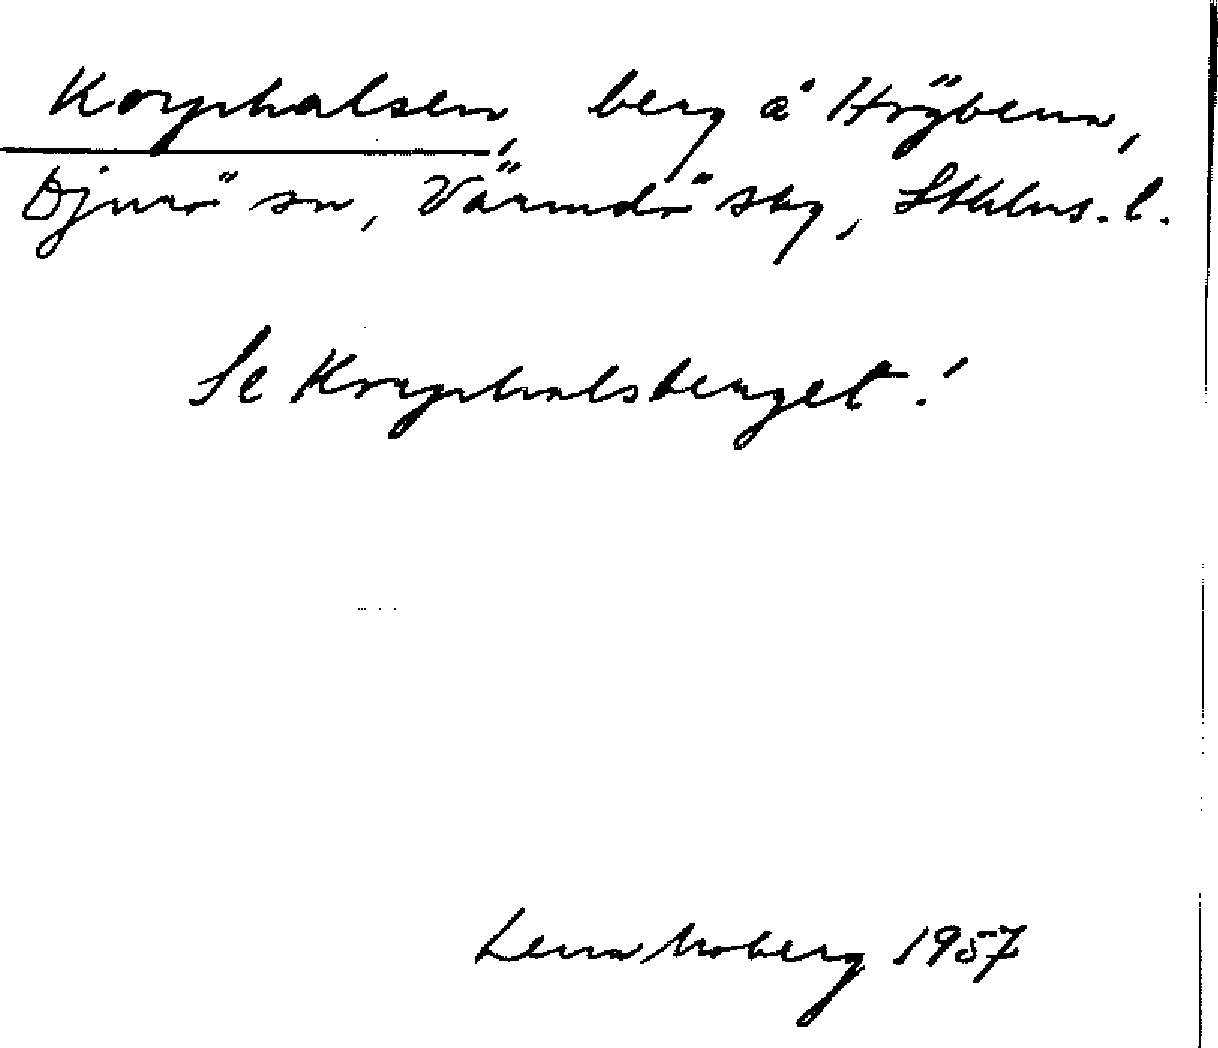 Korphalsen, berg å
Djurö sn, Värmdö skg, Sthlms. l.
Se Korphalsberget!
Lena Moberg 1957